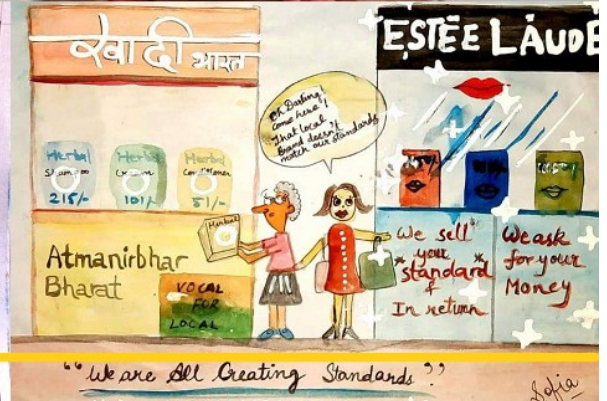 खादी भारत
ESTĒE LAUDE
Oh Darling!
Come here!
That local
Brand doesn't
match our standards
Herbal
Shampoo
215/-
Herbal
101/-
Herbal
Conditioner
51/-
Herbal
Atmanirbhar
Bharat
VOCAL
FOR
LOCAL
We sell
your
*standard*
&
In return
We ask
for your
Money
"We are All Creating Standards"
Sofia